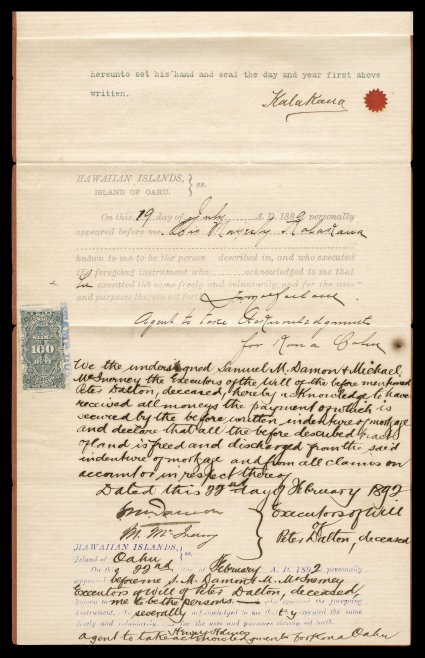 hereunto set his hand and seal the day and year first above
written.
Kalakaua
HAWAIIAN ISLANDS,
ISLAND OF OAHU. } ss.
On this 19 day of July A. D. 1889 personally
appeared before me His Majesty Kalakaua
known to me to be the person described in, and who executed
the foregoing instrument who acknowledged to me that
he executed the same freely and voluntarily, and for the uses
and purposes therein set forth.
Agent to take Acknowledgments
for Kona Oahu
STAMP
100
We the undersigned Samuel M. Damon & Michael
McInerney the Executors of the Will of the before mentioned
Peter Dalton, deceased, hereby acknowledge to have
received all moneys the payment of which is
secured by the before written indenture of mortgage
and declare that all the before described
of land is freed and discharged from the said
indenture of mortgage and from all claims on
account or in respect thereof
Dated this 22nd day of February 1892
S M Damon
M. McInerny
} Executors of Will
of
Peter Dalton, deceased
HAWAIIAN ISLANDS,
Island of Oahu } ss.
On this 22nd day of February A. D. 1892 personally
appeared before me S. M. Damon & M. McInerney
Executors of Will of Peter Dalton, deceased,
known to me to be the persons who executed the foregoing
instrument, severally acknowledged to me that they executed the same
freely and voluntarily for the uses and purposes therein set forth.
Agent to take acknowledgments for Kona Oahu